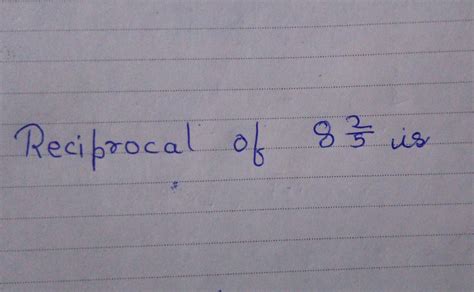 Reciprocal of 8 2/5 is